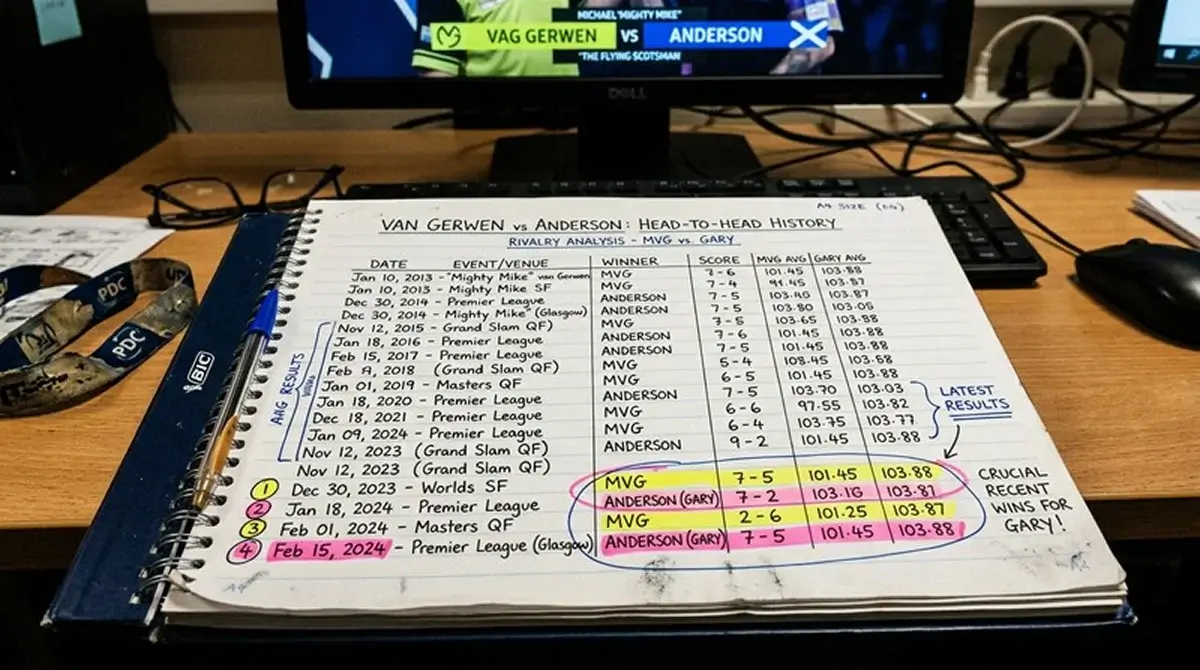 MICHAEL "MIGHTY MIKE"
VAG GERWEN VS ANDERSON
"THE FLYING SCOTSMAN
DELL
PDC
PDC
BIC
A4 SIZE
VAN GERWEN vs ANDERSON: HEAD-TO-HEAD HISTORY
RIVALRY ANALYSIS - MVG vs. GARY
DATE EVENT/VENUE WINNER SCORE MVG AVG GARY AVG
Jan 10, 2013 - "Mighty Mike" van Gerwen MVG 7-6 101.45 103.88
Jan 10, 2013 - Mighty Mike SF MVG 7-4 91.45 103.87
Dec 30, 2014 - Premier League ANDERSON 7-5 103.40 103.87
Dec 30, 2014 - Mighty Mike" (Glasgow) ANDERSON 7-5 103.80 103.05
Nov 12, 2015 - Grand Slam QF) MVG 7-5 103.65 103.88
Jan 18, 2016 - Premier League ANDERSON 7-6 101.45 103.88
Feb 15, 2017 - Premier League ANDERSON 7-5 101.45 103.88
Feb 9, 2018 (Grand Slam QF) MVG 5-4 108.45 103.68
Jan 01, 2019 - Masters QF MVG 6-5 101.45 103.88
Jan 18, 2020 - Premier League ANDERSON 7-5 103.70 103.03
Dec 18, 2021 - Premier League MVG 6-6 97.55 103.82
Jan 09, 2024 - Premier League MVG 6-4 103.75 103.77
Nov 12, 2023 (Grand Slam QF) ANDERSON 9-2 101.45 103.88
Nov 12, 2023 (Grand Slam QF)
1 Dec 30, 2023 - Worlds SF MVG 7-5 101.45 103.88
2 Jan 18, 2024 - Premier League ANDERSON (GARY) 7-2 103.16 103.87
3 Feb 01, 2024 - Masters QF MVG 2-6 101.25 103.87
4 Feb 15, 2024 - Premier League (Glasgow) ANDERSON (GARY) 7-5 101.45 103.88
AAG RESULTS
LATEST
RESULTS
CRUCIAL
RECENT
WINS FOR
GARY!